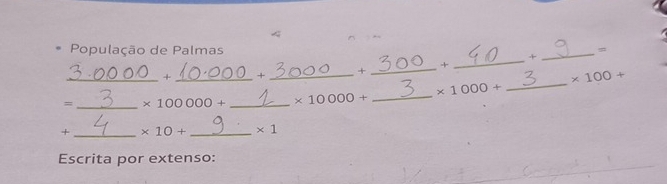 • População de Palmas
3.0000 + 10.000 + 3000 + 300 + 40 + 9 =
= 3 × 100 000 + 1 × 10 000 + 3 × 1 000 + 3 × 100 +
+ 4 × 10 + 9 × 1
Escrita por extenso: